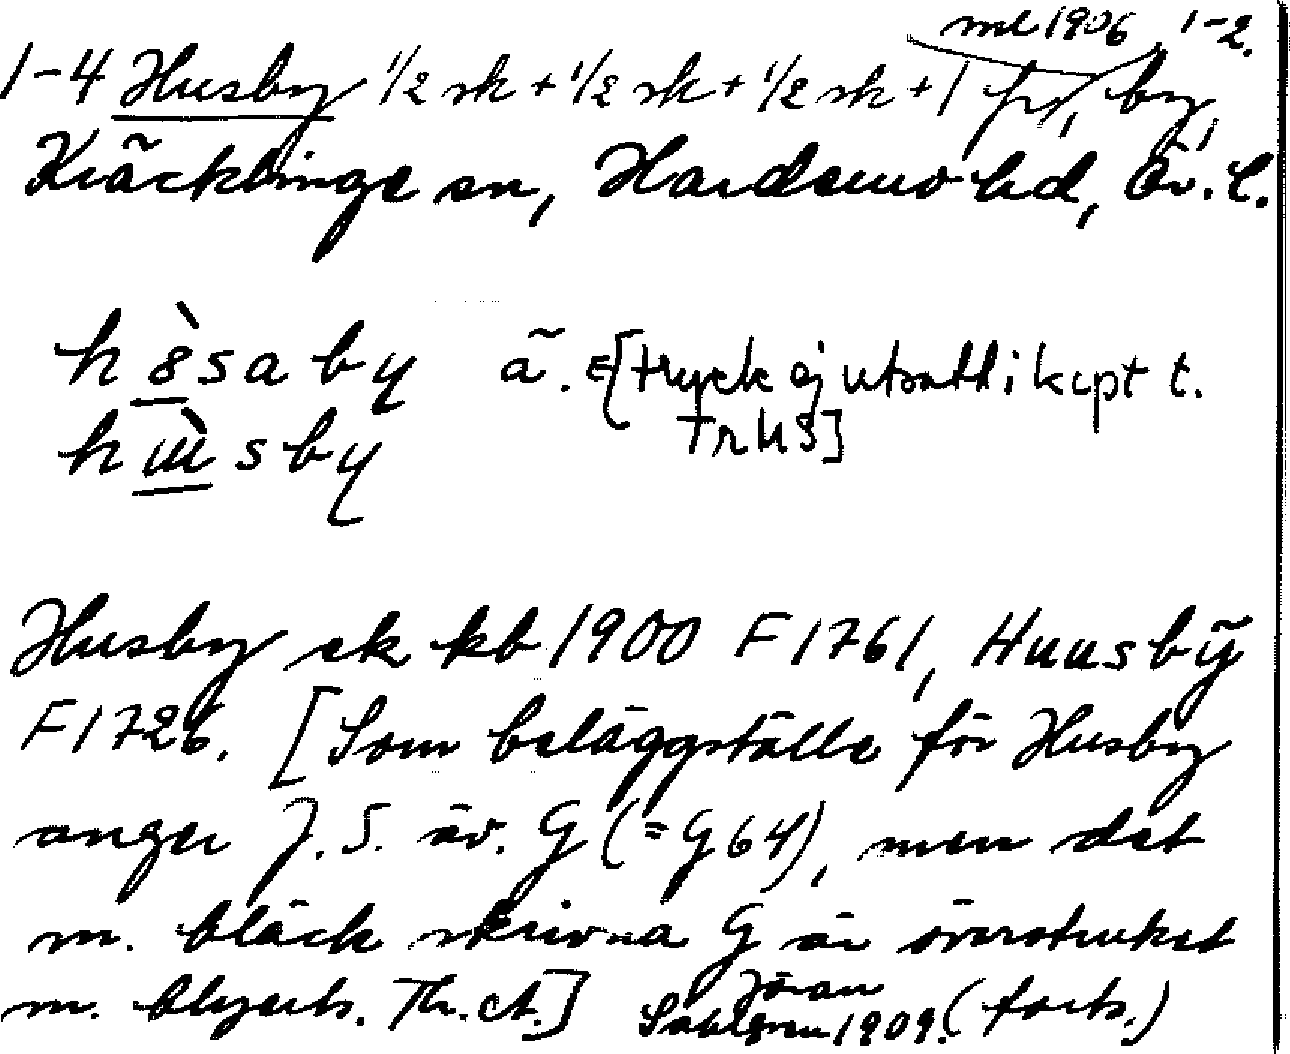 ml 1906 1-2.
1-4 Husby 1/2 sk + 1/2 sk + 1/2 sk + 1 fr, by,
Kräcklinge sn, Hardemo hd, Ör. l.
h8̀saby ä. [tryck ej utsatt i kcpt t.
TrUS]
hùsby
Husby ek kb 1900 F 1761, Huusbÿ
F 1726. [Som beläggställe för Husby
anger J.S. äv. G (= G 64), men det
m. bläck skrivna G är överstruket
m. blyerts. Th. ct.] Jöran
Sahlgren 1909. (forts.)